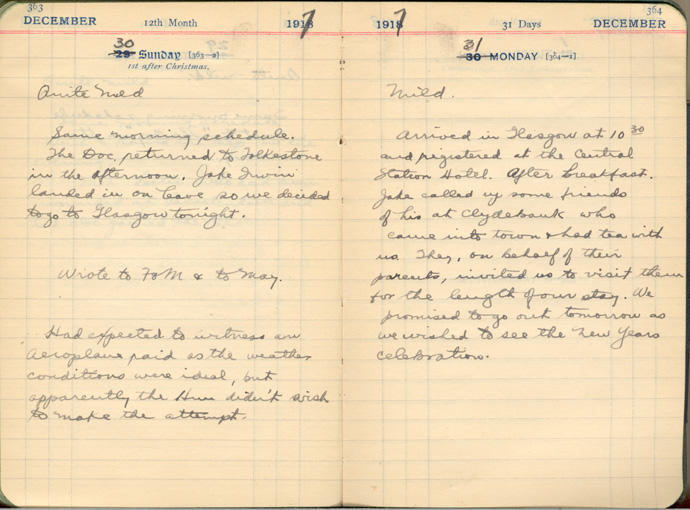 363
DECEMBER 12th Month 1917
30
29 Sunday [363-2]
1st after Christmas.
Quite Mild
Same morning schedule.
The Doc. returned to Folkestone
in the afternoon. Jake Irwin
landed in on leave so we decided
to go to Glasgow tonight.
Wrote to F & M & to May.
Had expected to witness an
aeroplane raid as the weather
conditions were ideal, but
apparently the Hun didn't wish
to make the attempt.
364
1917 31 Days DECEMBER
31
30 MONDAY [364-1]
Mild.
Arrived in Glasgow at 10 30
and registered at the Central
Station Hotel. After breakfast.
Jake called up some friends
of his at Clydebank who
came into town & had tea with
us. They, on behalf of their
parents, invited us to visit them
for the length of our stay. We
promised to go out tomorrow as
we wished to see the New Years
celebration.